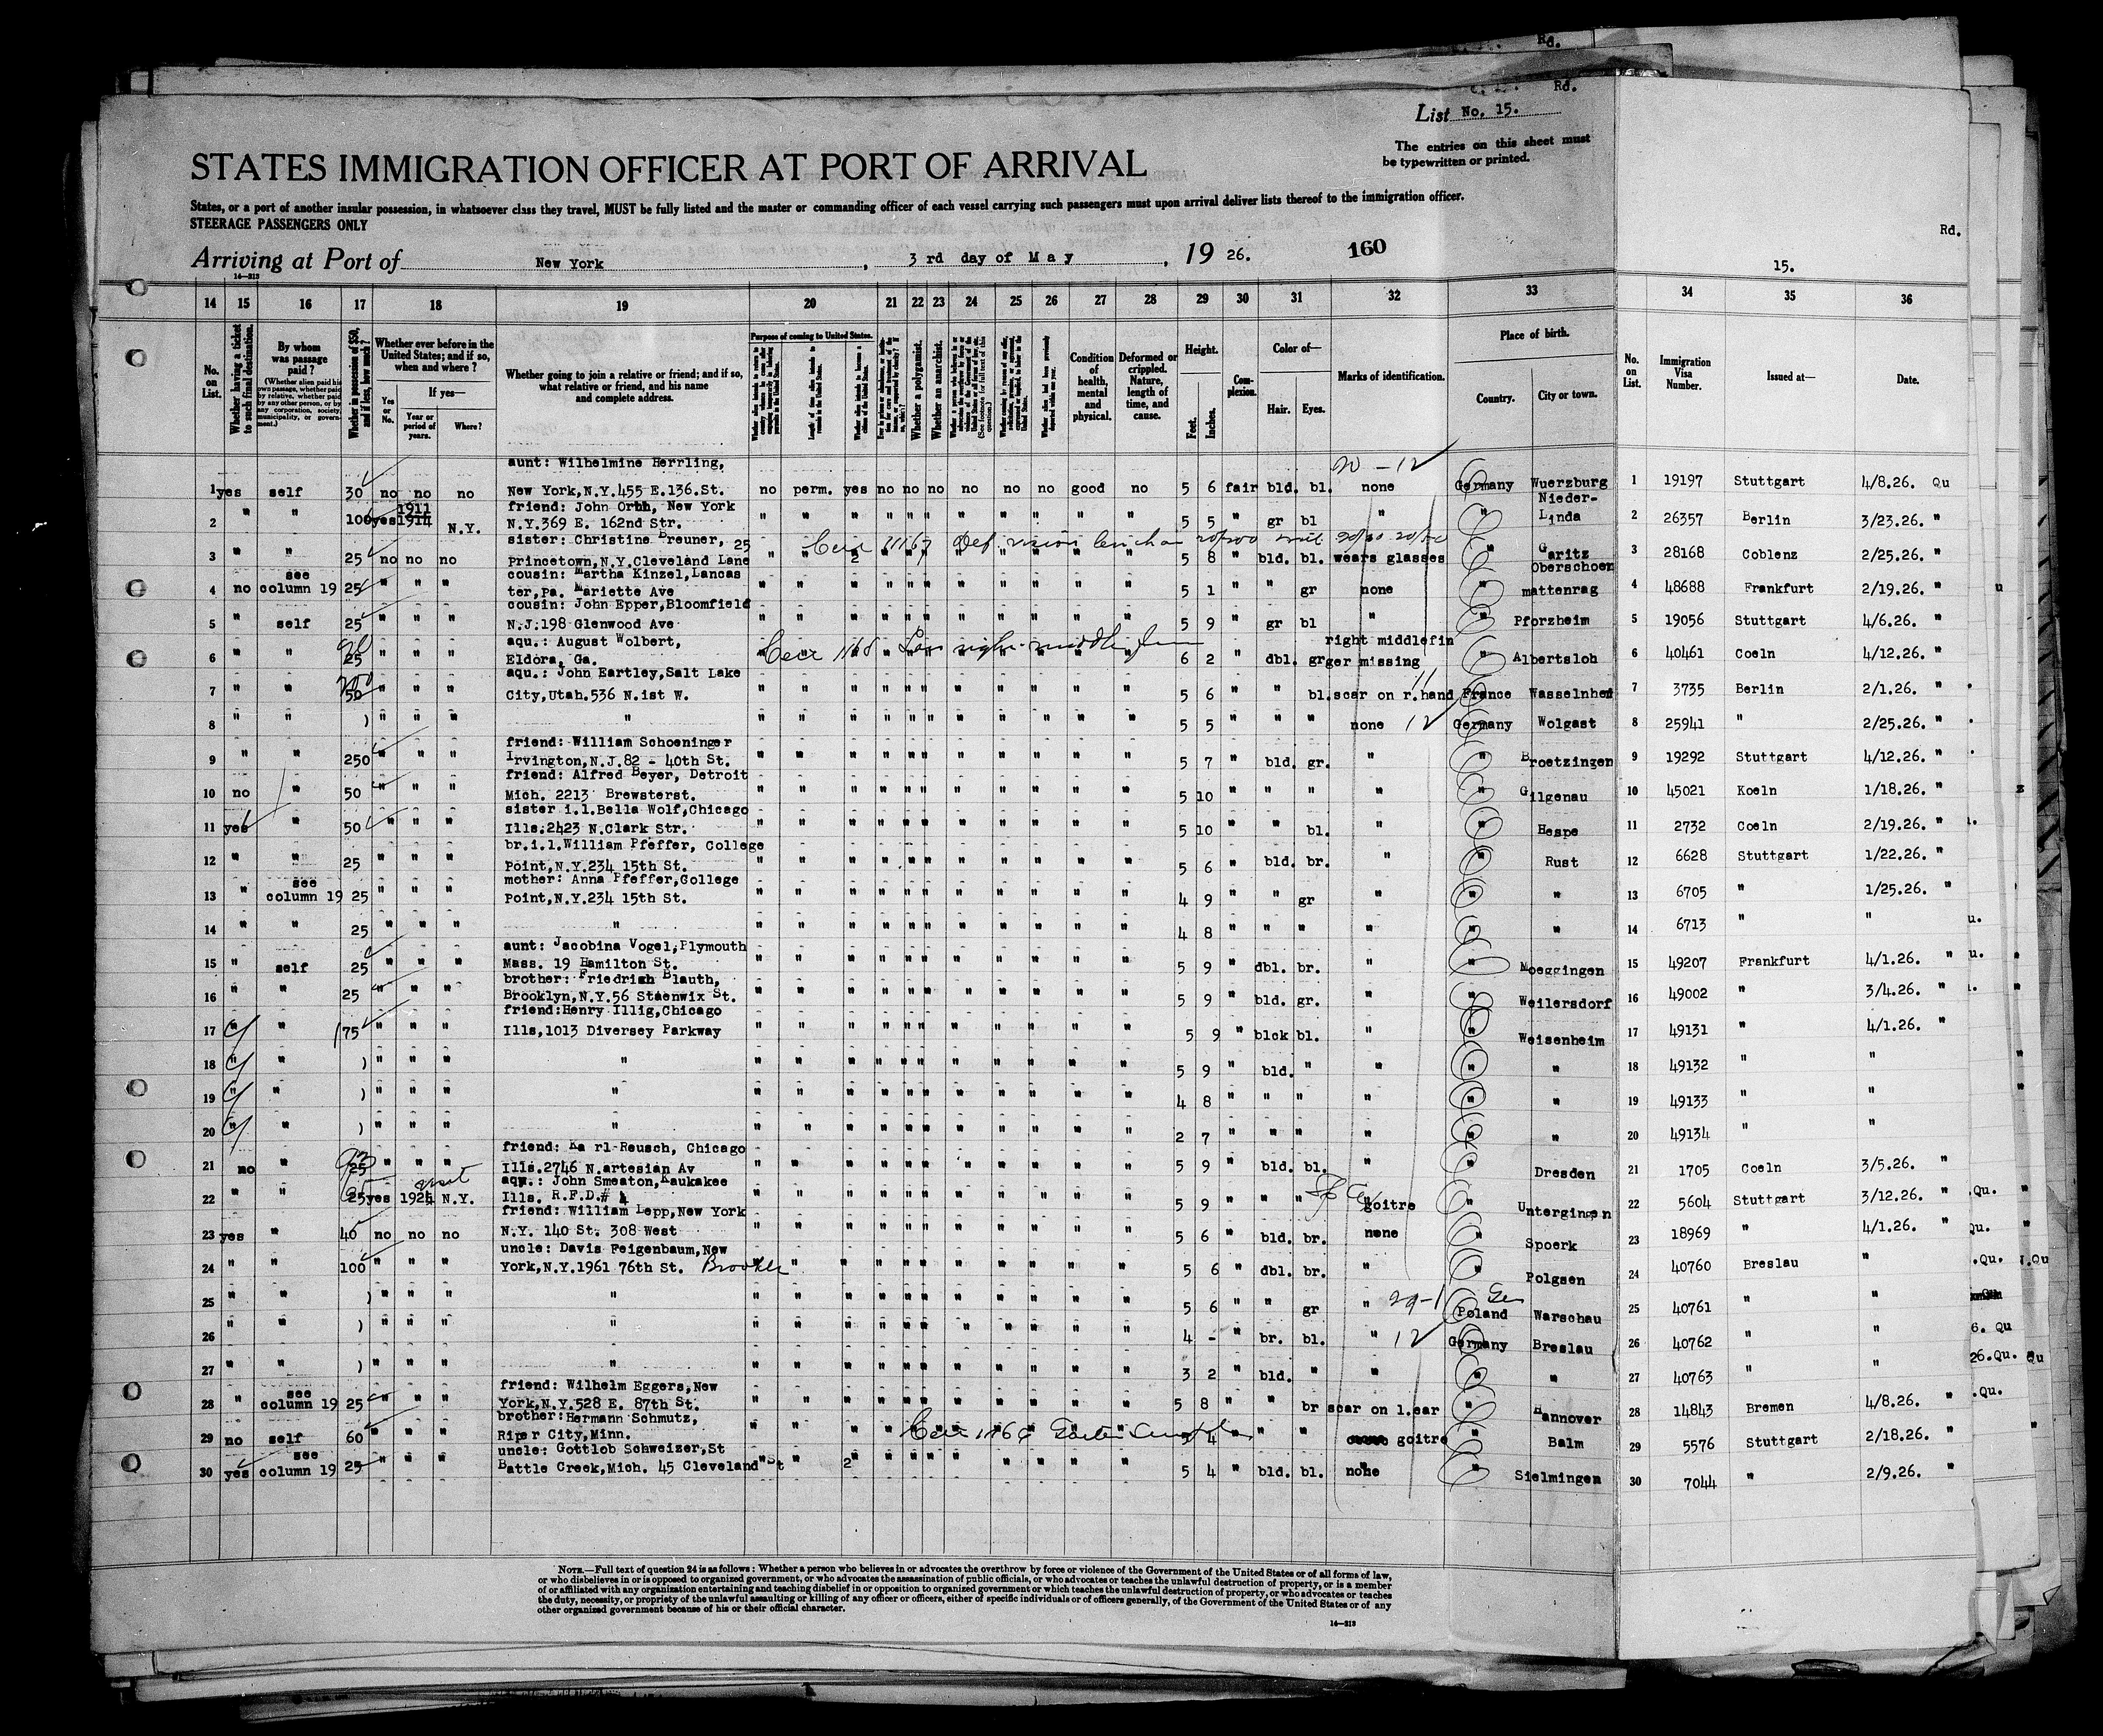 Rd.
Rd.
List No. 15.
The entries on this sheet must
be typewritten or printed.
STATES IMMIGRATION OFFICER AT PORT OF ARRIVAL
States, or a port of another insular possession, in whatsoever class they travel, MUST be fully listed and the master or commanding officer of each vessel carrying such passengers must upon arrival deliver lists thereof to the immigration officer.
STEERAGE PASSENGERS ONLY
Rd.
Arriving at Port of New York, 3rd day of May, 19 26. 160
15.
14—313
14 15 16 17 18 19 20 21 22 23 24 25 26 27 28 29 30 31 32 33 34 35 36
No. on List.
Whether having a ticket to such final destination.
By whom was passage paid?
(Whether alien paid his own passage, whether paid by relative, whether paid by any other person, or by any corporation, society, municipality, or government.)
Whether in possession of $50, and if less, how much?
Whether ever before in the United States; and if so, when and where?
If yes—
Yes or No.
Year or period of years.
Where?
Whether going to join a relative or friend; and if so, what relative or friend, and his name and complete address.
Purpose of coming to United States.
Length of time alien intends to remain in the United States.
Whether alien intends to become a citizen of the United States.
Whether a polygamist.
Whether an anarchist.
Condition of health, mental and physical.
Deformed or crippled. Nature, length of time, and cause.
Height.
Feet.
Inches.
Complexion.
Color of—
Hair.
Eyes.
Marks of identification.
Place of birth.
Country.
City or town.
No. on List.
Immigration Visa Number.
Issued at—
Date.
20 - 12
aunt: Wilhelmine Herrling,
1 yes self 30 no no no New York,N.Y.455 E.136.St. no perm. yes no no no no no no good no 5 6 fair bld. bl. none Germany Wuerzburg 1 19197 Stuttgart 4/8.26. Qu
1911 friend: John Orth, New York Nieder-
2 " " 100 yes 1914 N.Y. N.Y.369 E. 162nd Str. " " " " " " " " " " " 5 5 " gr bl " " Linda 2 26357 Berlin 3/23.26. "
sister: Christine Breuner, 25
3 " " 25 no no no Princetown,N.Y.Cleveland Lane " " 2 " 5 8 " bld. bl. wears glasses " Garitz 3 28168 Coblenz 2/25.26. "
see cousin: Martha Kinzel,Lancas Oberschoen
4 no column 19 25 " " " ter,Pa. Mariette Ave " " " " " " " " " " " 5 1 " " gr none " mattenrag 4 48688 Frankfurt 2/19.26. "
cousin: John Epper,Bloomfield
5 " self 25 " " " N.J.198 Glenwood Ave " " " " " " " " " " " 5 9 " gr bl " " Pforzheim 5 19056 Stuttgart 4/6.26. "
aqu.: August Wolbert, right middlefin
6 " " 25 " " " Eldora, Ga. 6 2 " dbl. gr ger missing " Albertsloh 6 40461 Coeln 4/12.26. "
aqu.: John Eartley,Salt Lake
7 " " 50 " " " City,Utah.536 N.1st W. " " " " " " " " " " " 5 6 " " bl. scar on r.hand France Wasselnhen 7 3735 Berlin 2/1.26. "
8 " " ) " " " " " " " " " " " " " " " " 5 5 " " " none 12 Germany Wolgast 8 25941 " 2/25.26. "
friend: William Schoeninger
9 " " 250 " " " Irvington,N.J.82 - 40th St. " " " " " " " " " " " 5 7 " bld. gr. " " Broetzingen 9 19292 Stuttgart 4/12.26. "
friend: Alfred Beyer, Detroit
10 no " 50 " " " Mich. 2213 Brewsterst. " " " " " " " " " " " 5 10 " " " " " Gilgenau 10 45021 Koeln 1/18.26. "
sister i.l.Bella Wolf,Chicago
11 yes " 50 " " " Ills.2423 N.Clark Str. " " " " " " " " " " " 5 10 " " bl. " " Hespe 11 2732 Coeln 2/19.26. "
br.i.l.William Pfeffer, College
12 " " 25 " " " Point,N.Y.234 15th St. " " " " " " " " " " " 5 6 " bld. br. " " Rust 12 6628 Stuttgart 1/22.26. "
see mother: Anna Pfeffer,College
13 " column 19 25 " " " Point,N.Y.234 15th St. " " " " " " " " " " " 4 9 " " gr " " " 13 6705 " 1/25.26. "
14 " " 25 " " " " " " " " " " " " " " " " 4 8 " " " " " " 14 6713 " "
aunt: Jacobina Vogel,Plymouth
15 " self 25 " " " Mass. 19 Hamilton St. " " " " " " " " " " " 5 9 " dbl. br. " " Moeggingen 15 49207 Frankfurt 4/1.26. "
brother: Friedrich Blauth,
16 " " 25 " " " Brooklyn,N.Y.56 Staenwix St. " " " " " " " " " " " 5 9 " bld. gr. " " Weilersdorf 16 49002 " 3/4.26. "
friend:Henry Illig,Chicago
17 " " 175 " " " Ills,1013 Diversey Parkway " " " " " " " " " " " 5 9 " blck bl. " " Weisenheim 17 49131 " 4/1.26. "
18 " " ) " " " " " " " " " " " " " " " " 5 9 " bld. " " " " 18 49132 " "
19 " " ) " " " " " " " " " " " " " " " " 4 8 " " " " " " 19 49133 " "
20 " " ) " " " " " " " " " " " " " " " " 2 7 " " " " " " 20 49134 " "
friend: Ka rl Reusch, Chicago
21 no " 25 " " " Ills.2746 N.artesian Av " " " " " " " " " " " 5 9 " bld. bl. " " Dresden 21 1705 Coeln 3/5.26. "
visit aqu.: John Smeaton,Kaukakee
22 " " 25 yes 1924 N.Y. Ills. R.F.D.# 4 " " " " " " " " " " " 5 9 " " goitre " Untergingen 22 5604 Stuttgart 3/12.26. "
friend: William Lepp,New York
23 yes " 40 no no no N.Y. 140 St. 308 West " " " " " " " " " " " 5 6 " bld. br. none " Spoerk 23 18969 " 4/1.26. "
uncle: Davis Feigenbaum,New
24 " " 100 " " " York,N.Y.1961 76th St. Brooklen " " " " " " " " " " 5 6 " dbl. br. " " Polgsen 24 40760 Breslau "
25 " " ) " " " " " " " " " " " " " " " " 5 6 " " gr " 29-1 Poland Warschau 25 40761 " "
26 " " ) " " " " " " " " " " " " " " " " 4 - " br. bl. " 12 Germany Breslau 26 40762 " "
27 " " ) " " " " " " " " " " " " " " " " 3 2 " bld. " " " " 27 40763 " "
see friend: Wilhelm Eggers,New
28 " column 19 25 " " " York,N.Y.528 E. 87th St. " " " " " " " " " " " 5 8 " " br scar on l.ear " Hannover 28 14843 Bremen 4/8.26. "
brother: Hermann Schmutz,
29 no self 60 " " " Riper City,Minn. " " " 5 4 " " " goitre " Balm 29 5576 Stuttgart 2/18.26. "
see uncle: Gottlob Schweizer,St
30 yes column 19 25 " " " Battle Creek,Mich. 45 Cleveland St " 2 " " " " " " " " 5 4 " bld. bl. none " Sielmingen 30 7044 " 2/9.26. "
NOTE.—Full text of question 24 is as follows: Whether a person who believes in or advocates the overthrow by force or violence of the Government of the United States or of all forms of law,
or who disbelieves in or is opposed to organized government, or who advocates the assassination of public officials, or who advocates or teaches the unlawful destruction of property, or is a member
of or affiliated with any organization entertaining and teaching disbelief in or opposition to organized government or which teaches the unlawful destruction of property, or who advocates or teaches
the duty, necessity, or propriety of the unlawful assaulting or killing of any officer or officers, either of specific individuals or of officers generally, of the Government of the United States or of any
other organized government because of his or their official character.
14—313